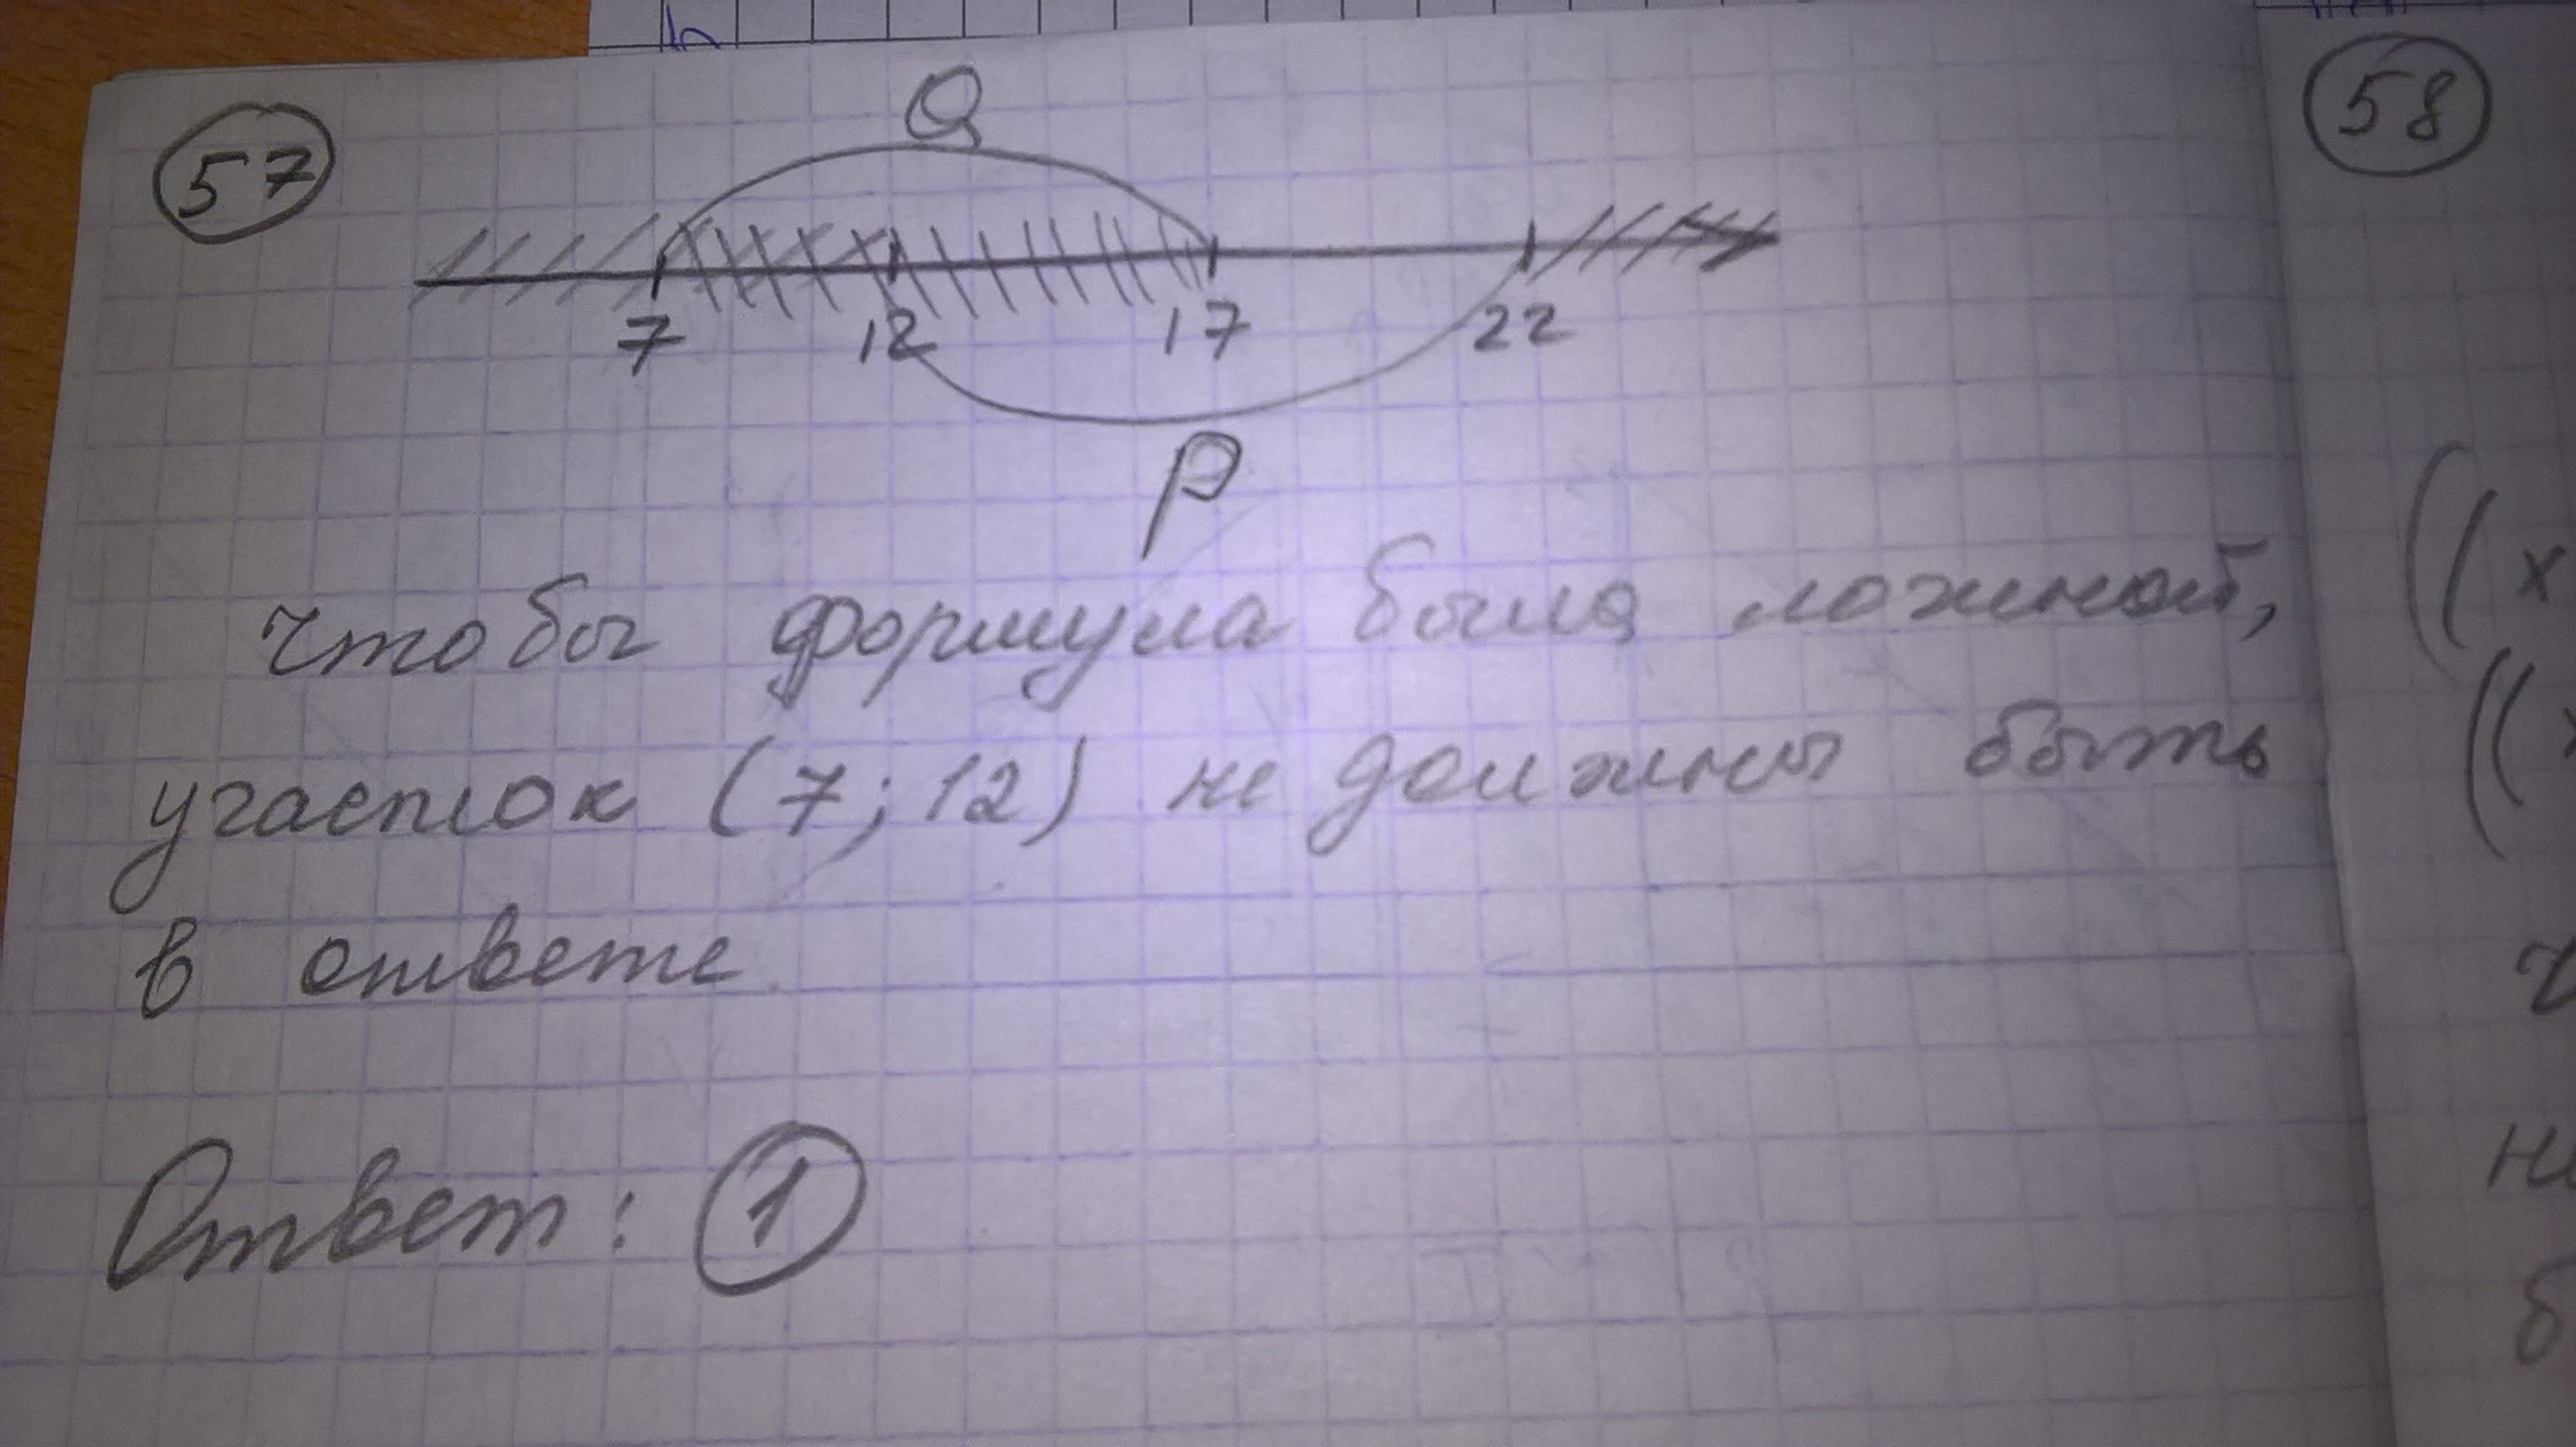 57
58
Q
7 12 17 22
P
чтобы формула была ложной,
участок (7; 12) не должны быть
в ответе.
Ответ: 1
((х
((
не
б